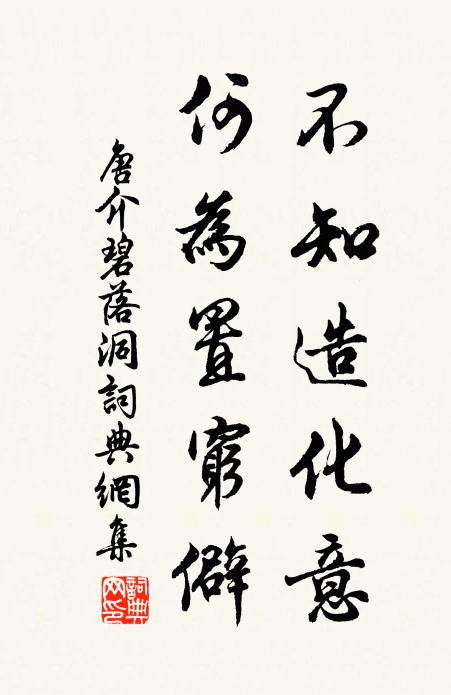 不知造化意
何為置窮僻
唐介碧落洞詞典網集
詞典
网印